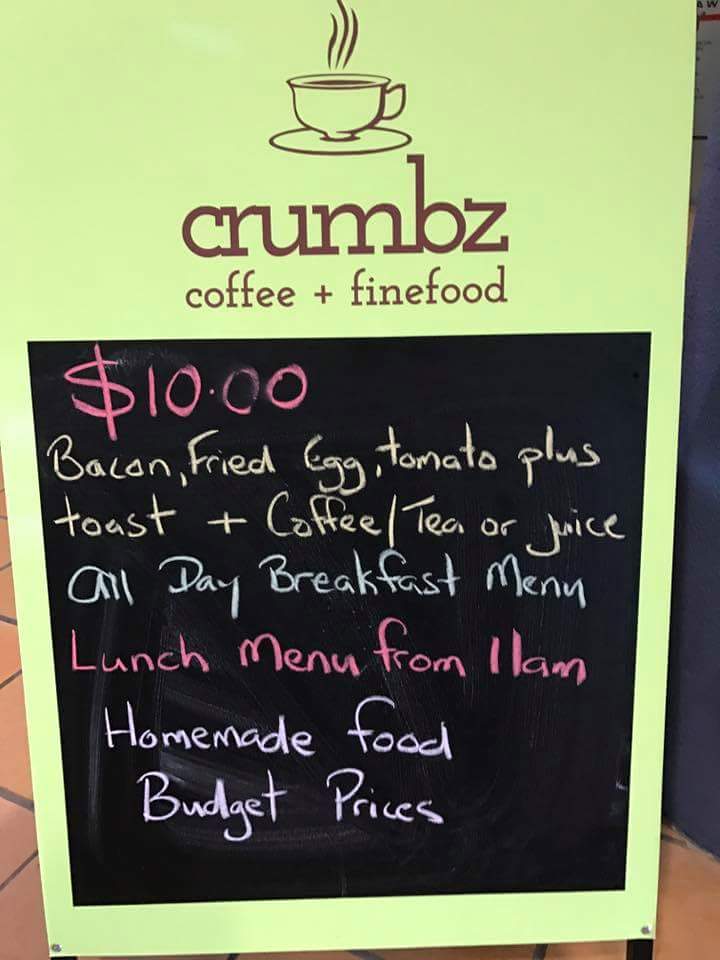 crumbz
coffee + finefood
$10.00
Bacon, Fried Egg, tomato plus
toast + Coffee/Tea or juice
All Day Breakfast Menu
Lunch Menu from 11am
Homemade food
Budget Prices